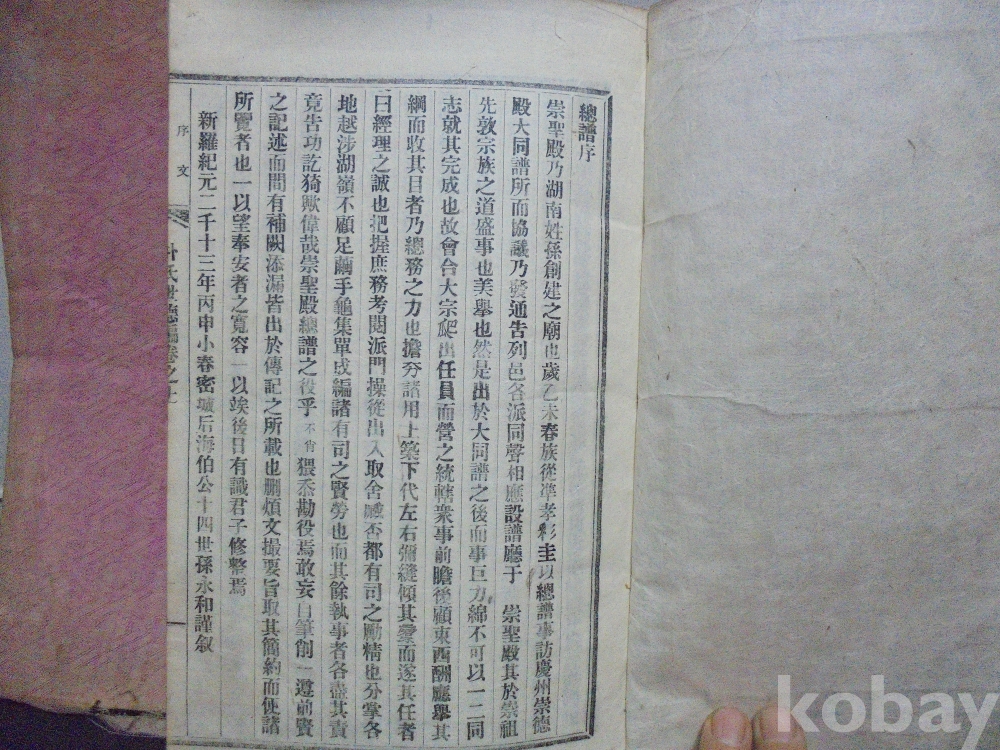 總譜序
崇聖殿乃湖南姓孫創建之廟也歲乙未春族從準孝彩圭以總譜事訪慶州崇德
殿大同譜所而協議乃發通告列邑各派同聲相應設譜廳于 崇聖殿其於崇祖
先敦宗族之道盛事也美擧也然是出於大同譜之後而事巨力綿不可以一二同
志就其完成也故會合大宗爬出任員而營之統轄衆事前瞻後顧東西酬應擧其
綱而收其目者乃總務之力也擔夯諸用上築下代左右彌縫傾其橐而遂其任者
曰經理之誠也把握庶務考閱派門操從出入取舍臧否都有司之勵精也分掌各
地越涉湖嶺不顧足繭手龜集單成編諸有司之賢勞也而其餘執事者各盡其責
竟告功訖猗歟偉哉崇聖殿總譜之役乎不肖猥忝勘役焉敢妄自筆創一遵前賢
之記述而間有補闕添漏皆出於傳記之所載也刪煩文撮要旨取其簡約而便諸
所覽者也一以望奉安者之寬容一以竢後日有識君子修整焉
新羅紀元二千十三年丙申小春密城后海伯公十四世孫永和謹叙
序文
朴氏世德編卷之上
kobay